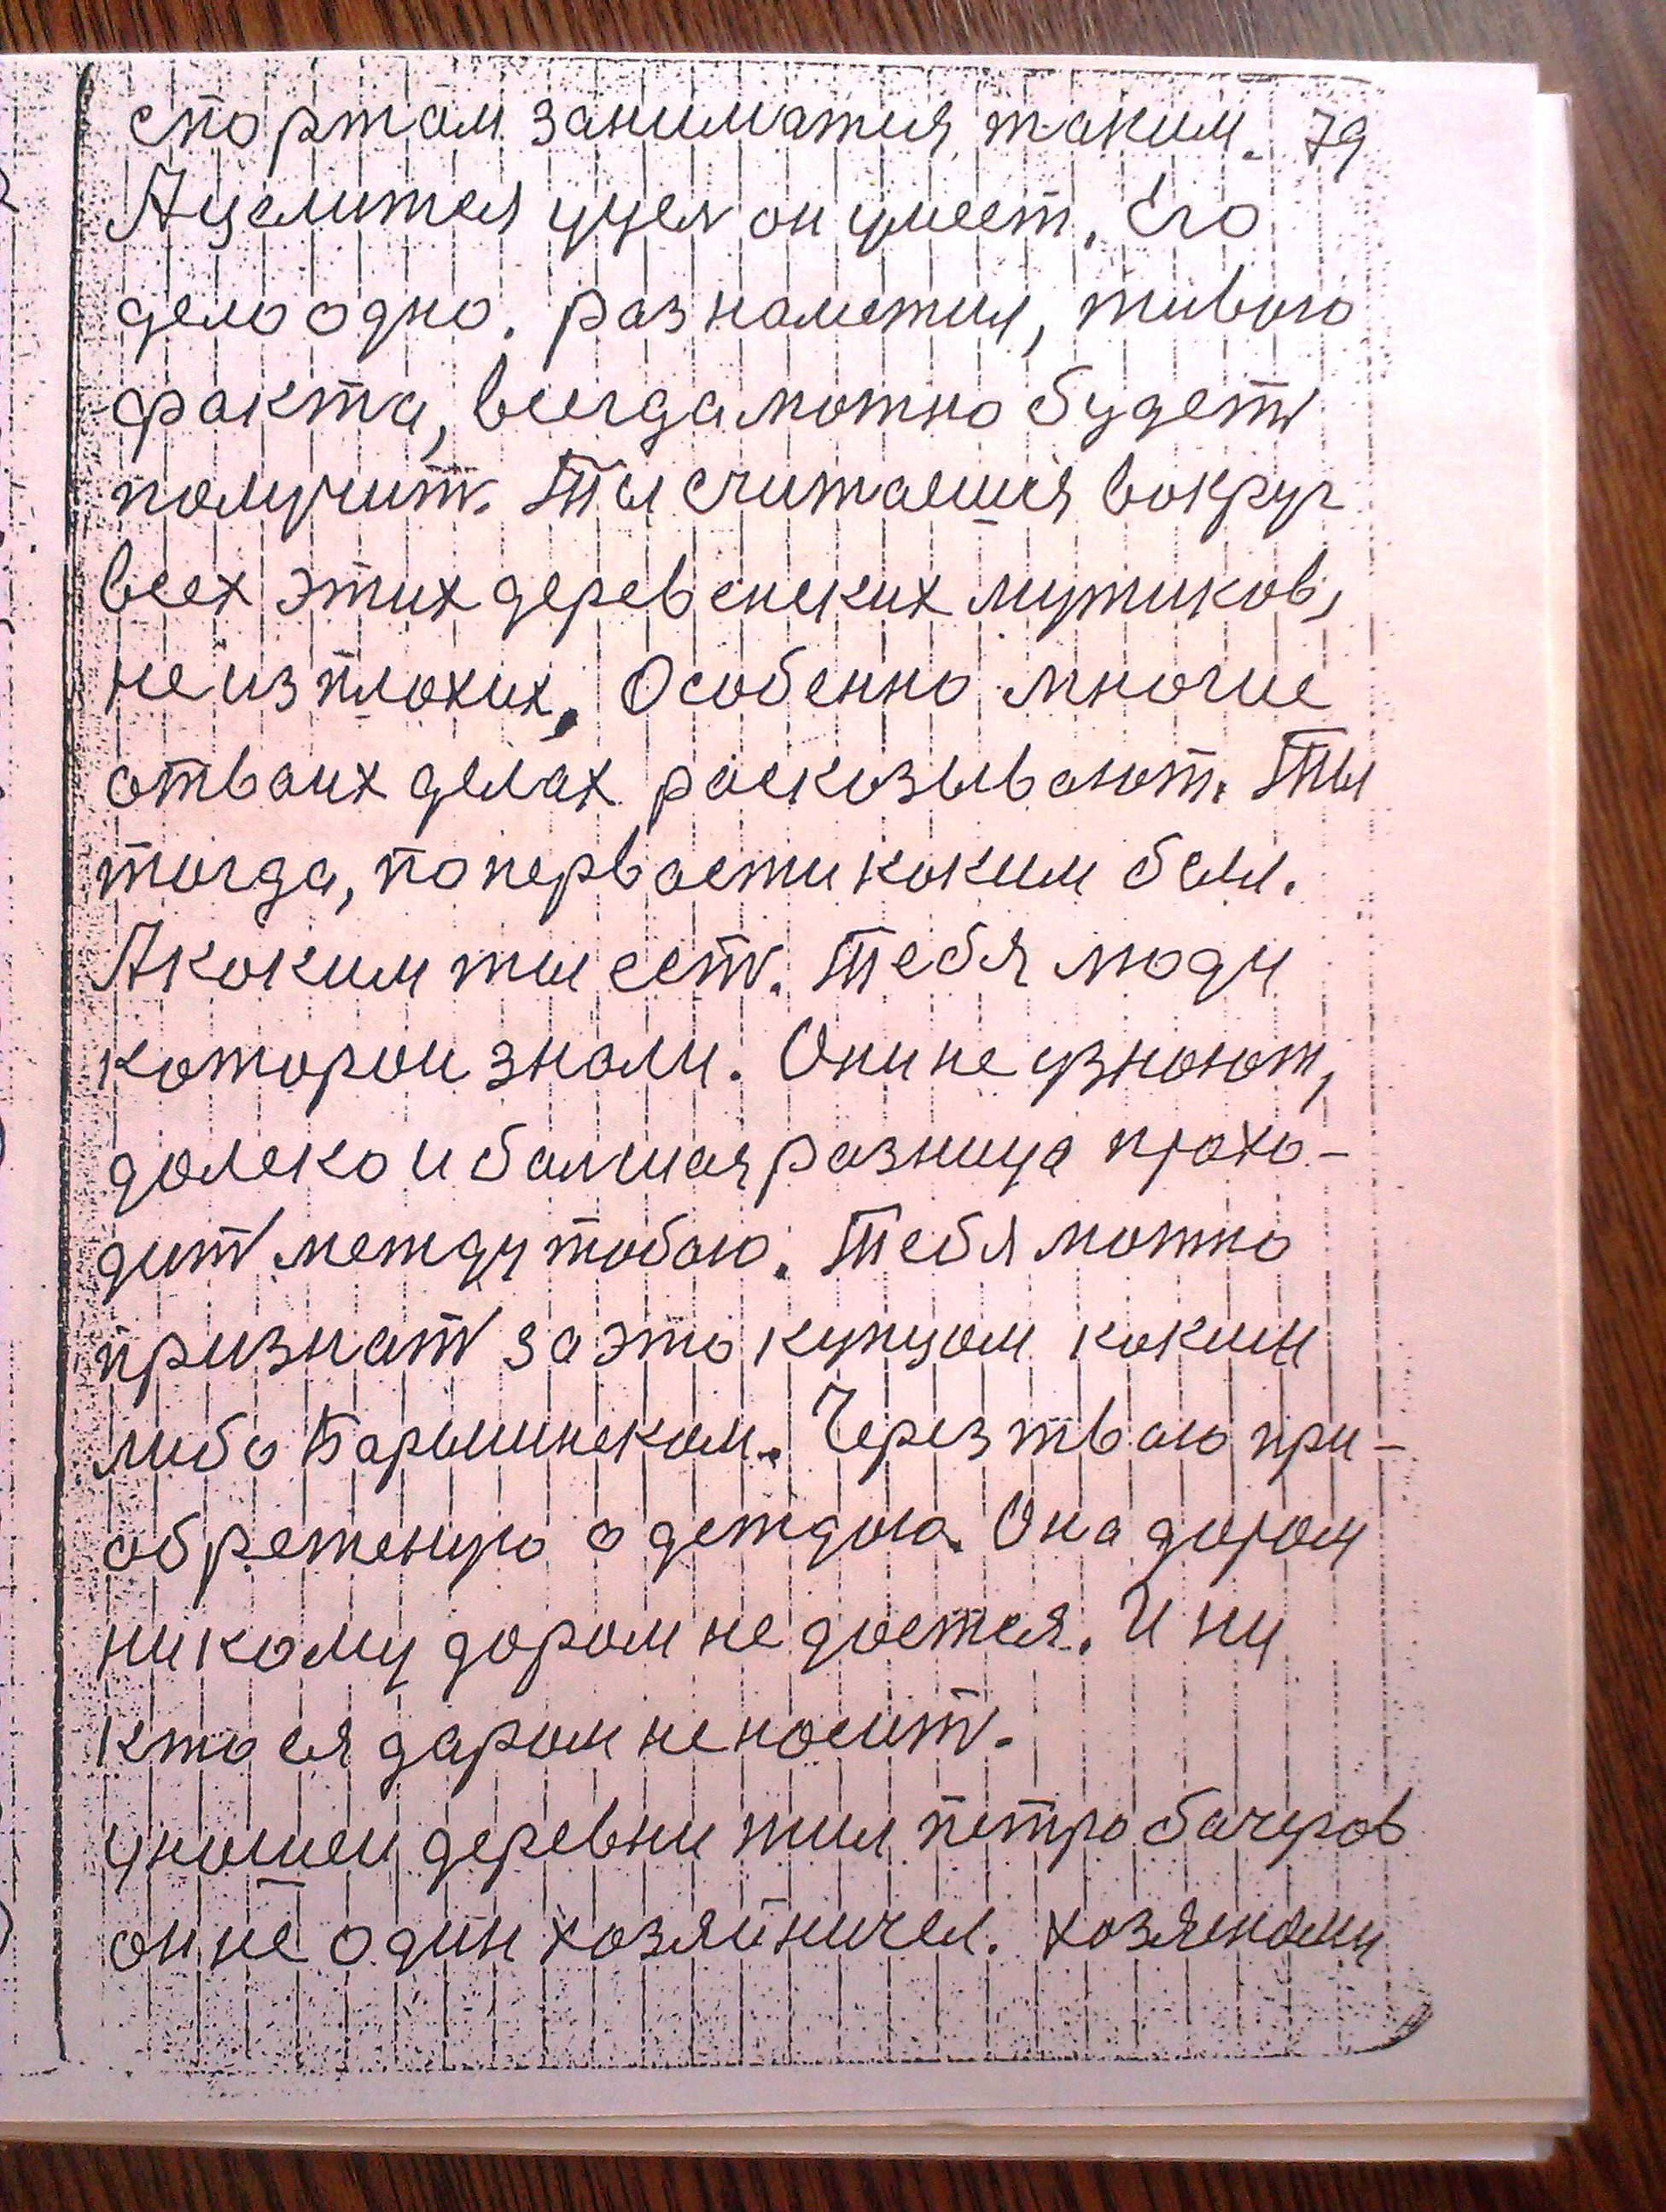 спортам заниматися таким. 79
Ацелится уцел он умеет. Его
дело одно. разнаметил, живого
факта, всегда можно будет
получит. Ты считаешся вокруг
всех этих деревенских мужиков,
не из плохих. Особенно многие
отваих делах расказывают. Ты
тогда, попервасти каким был.
А каким ты ест. Тебя люди
которои знали. Они не узнают,
далеко и балшая разница прохо-
дит между тобою. Тебя можно
признат за это купцом каким
либо Барышнеком. Через тваю при-
обретеную одеждою. Она даром
никому даром не дается. И ни
кто ея даром неносит.
унашей деревни жил петро бачеров
он не один хозяйничел. хозяеному